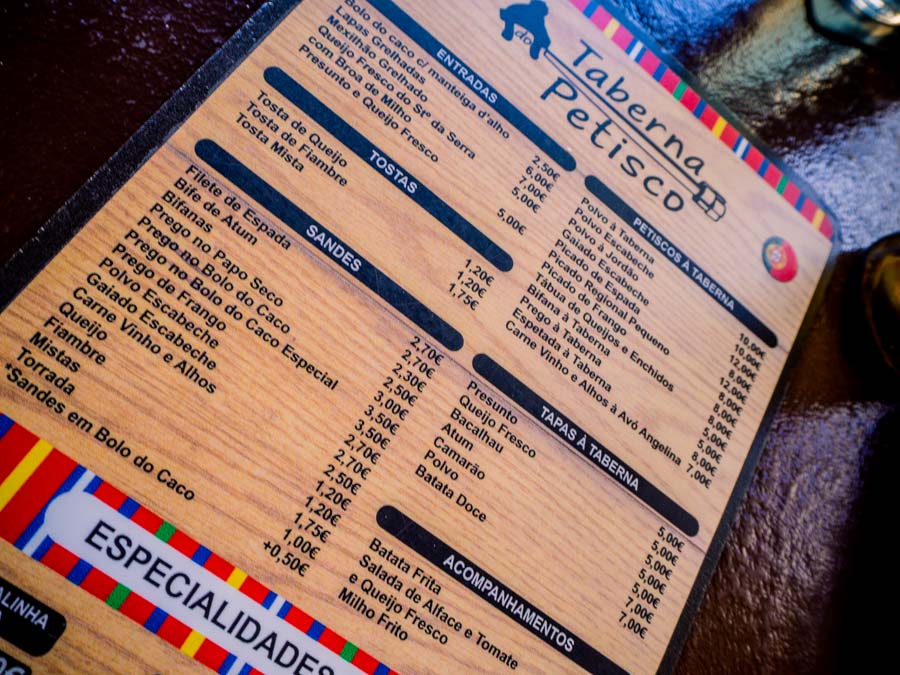 Taberna
do
Petisco
ENTRADAS
Bolo do caco c/ manteiga d'alho 2,50€
Lapas Grelhadas 6,00€
Mexilhão Grelhado 7,00€
Queijo Fresco do Stº da Serra 5,00€
com Broa de Milho
Presunto e Queijo Fresco 5,00€
TOSTAS
Tosta de Queijo 1,20€
Tosta de Fiambre 1,20€
Tosta Mista 1,75€
SANDES
Filete de Espada 2,70€
Bife de Atum 2,70€
Bifanas 2,30€
Prego no Papo Seco 2,50€
Prego no Bolo do Caco 3,00€
Prego no Bolo do Caco Especial 3,50€
Prego de Frango 3,50€
Polvo Escabeche 2,70€
Gaiado Escabeche 2,70€
Carne Vinho e Alhos 2,50€
Queijo 1,20€
Fiambre 1,20€
Mistas 1,75€
Torrada 1,00€
*Sandes em Bolo do Caco +0,50€
PETISCOS À TABERNA
Polvo à Taberna 10,00€
Polvo Escabeche 10,00€
Polvo à Jordão 12,00€
Gaiado Escabeche 8,00€
Picado de Espada 12,00€
Picado Regional Pequeno 8,00€
Picado de Frango 8,00€
Tábua de Queijos e Enchidos 8,00€
Bifana à Taberna 5,00€
Prego à Taberna 8,00€
Espetada à Taberna 8,00€
Carne Vinho e Alhos à Avó Angelina 7,00€
TAPAS À TABERNA
Presunto 5,00€
Queijo Fresco 5,00€
Bacalhau 5,00€
Atum 5,00€
Camarão 5,00€
Polvo 7,00€
Batata Doce 7,00€
ACOMPANHAMENTOS
Batata Frita
Salada de Alface e Tomate
e Queijo Fresco
Milho Frito
ESPECIALIDADES